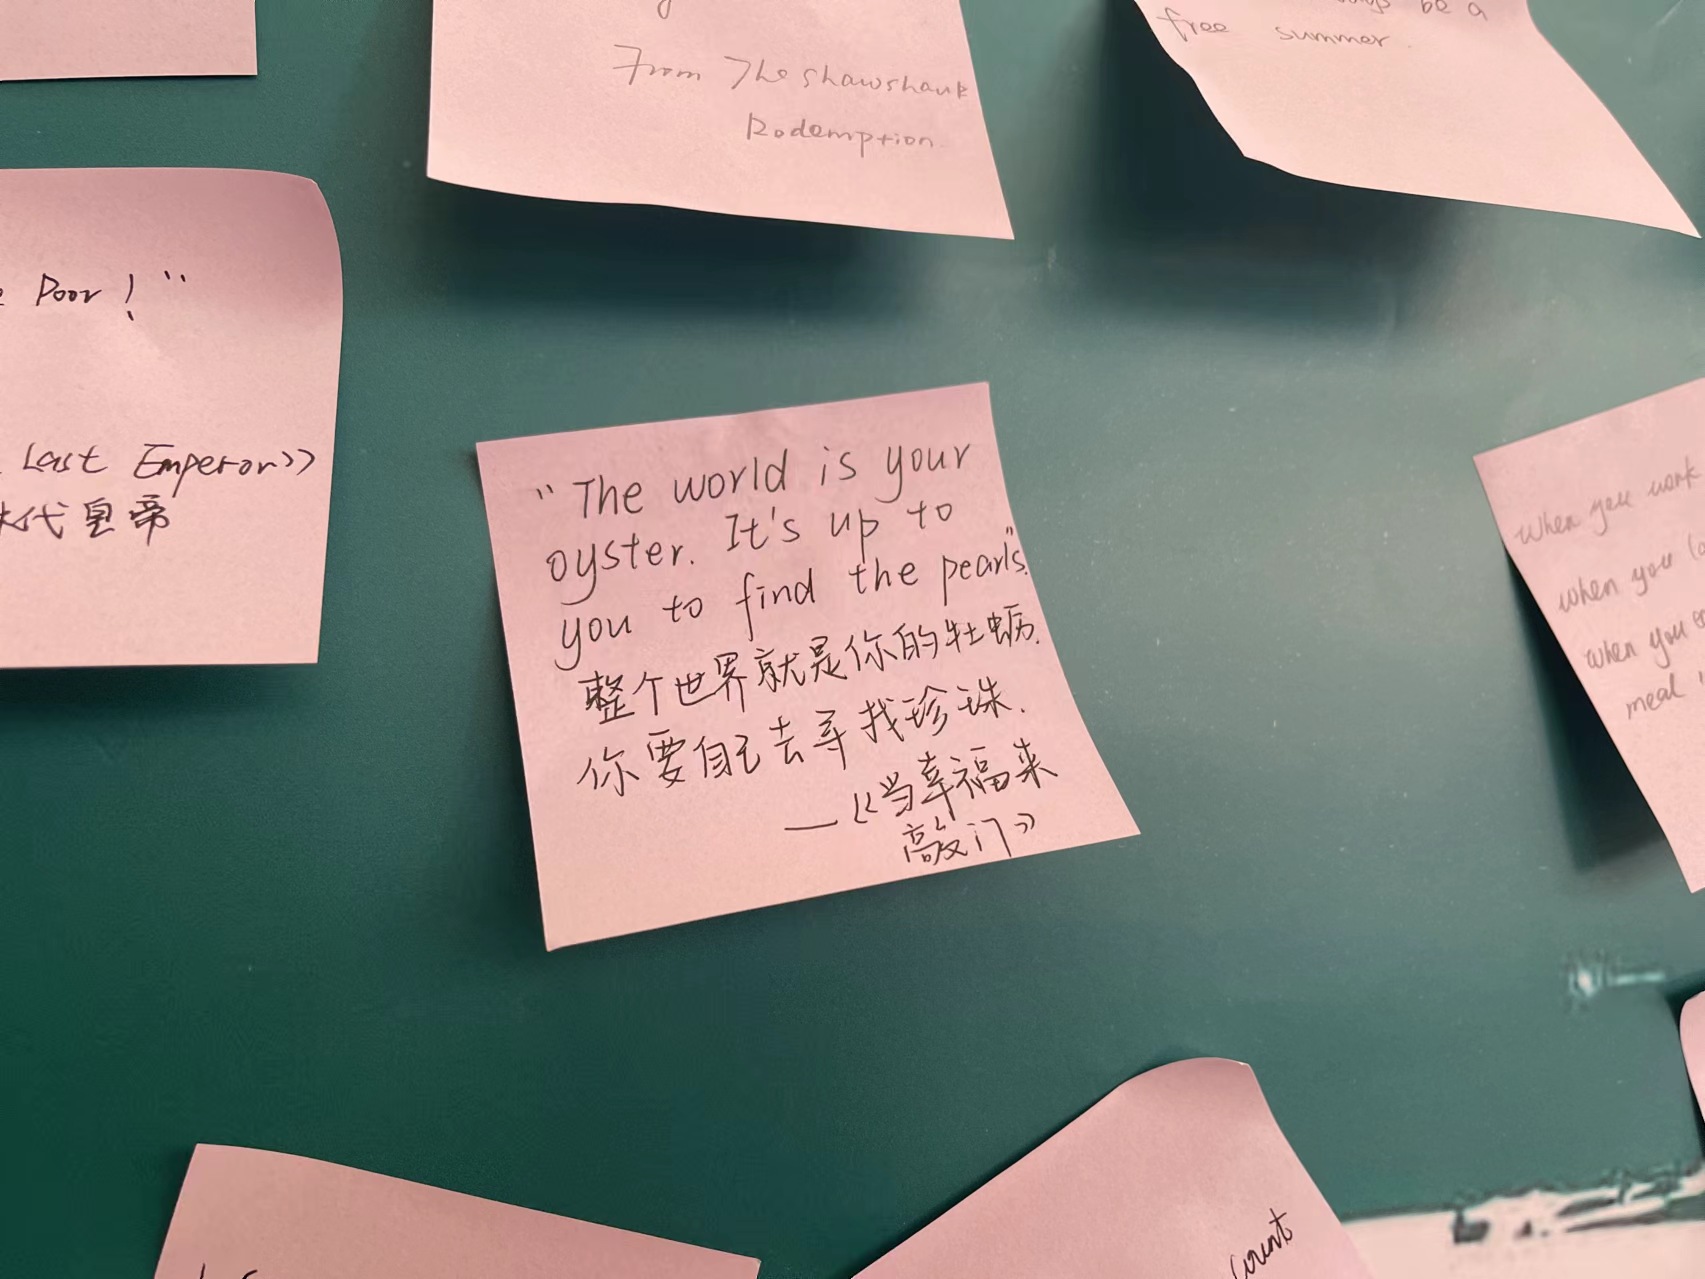 From The Shawshank
Rodemption
be a
free summer.
Poor!"
Last Emperor>>
末代皇帝
"The world is your
oyster. It's up to
you to find the pearls."
整个世界就是你的牡蛎.
你要自己去寻找珍珠.
—《当幸福来
敲门》
When you work
when you
when you
meal
counts